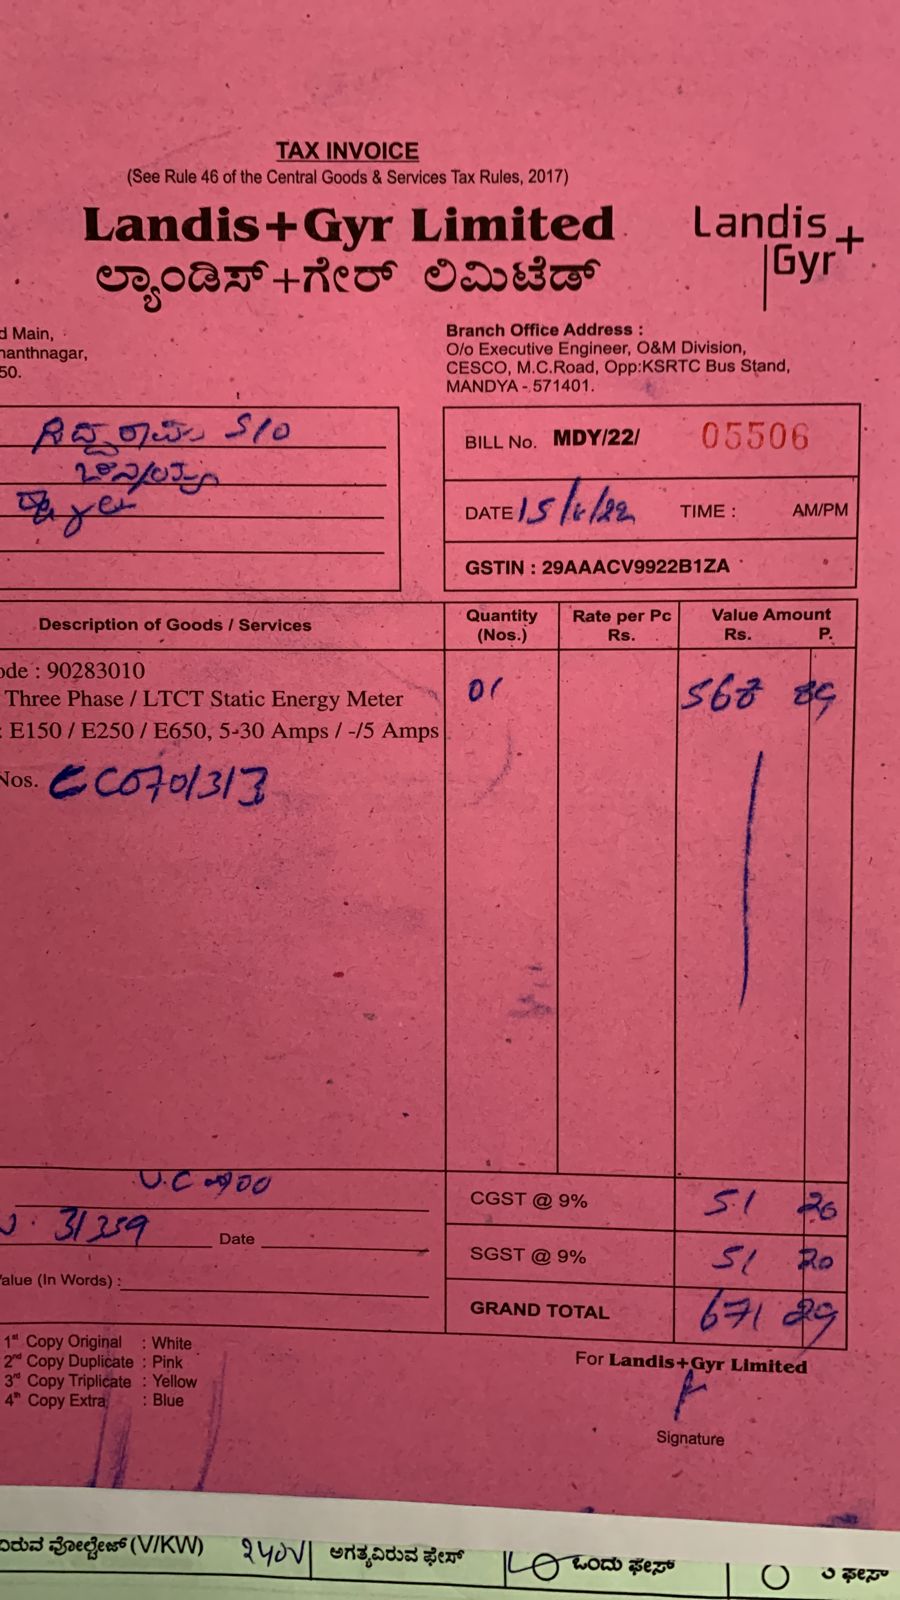 TAX INVOICE
(See Rule 46 of the Central Goods & Services Tax Rules, 2017)
Landis+Gyr Limited
Landis
Gyr+
ಲ್ಯಾಂಡಿಸ್+ಗೇರ್ ಲಿಮಿಟೆಡ್
d Main,
nanthnagar,
50.
Branch Office Address :
O/o Executive Engineer, O&M Division,
CESCO, M.C.Road, Opp:KSRTC Bus Stand,
MANDYA - 571401.
ಸಿದ್ದರಾಮು S/O
BILL No. MDY/22/ 05506
DATE 15/6/22 TIME : AM/PM
GSTIN : 29AAACV9922B1ZA
Description of Goods / Services
Quantity (Nos.)
Rate per Pc Rs.
Value Amount Rs. P.
ode : 90283010
Three Phase / LTCT Static Energy Meter
01
568 89
: E150 / E250 / E650, 5-30 Amps / -/5 Amps
Nos. CC0701313
31359
Date
Value (In Words) :
CGST @ 9% 51 20
SGST @ 9% 51 20
GRAND TOTAL 671 29
1st Copy Original : White
2nd Copy Duplicate : Pink
3rd Copy Triplicate : Yellow
4th Copy Extra : Blue
For Landis+Gyr Limited
Signature
ವಿರುವ ವೋಲ್ಟೇಜ್ (V/KW) 240V
ಅಗತ್ಯವಿರುವ ಫೇಸ್
ಒಂದು ಫೇಸ್
೩ ಫೇಸ್